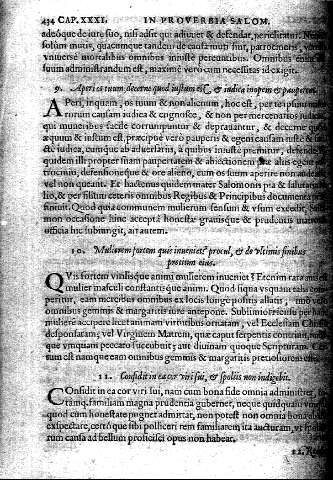 434 CAP. XXXI. IN PROVERBIA SALOM.
adeóque de iure suo, nisi adsit qui adiuuet & defendat, periclitatur. Ne
solùm mutis, quacumque tandem de causa muti sint, patrocineris,
vniuersè mortalibus omnibus iniustè pereuntibus. Omnibus enim
suum administrandum est, maximè verò cum necessitas id exigit.
9. Aperi os tuum decerne quod iustum est, & iudica inopem & pauperem.
APeri, inquam, os tuum & non alienum, hoc est, per te ipsum
rorum causam audice & cognosce, & non per mercenarios iudices
qui muneribus facilè corrumpuntur & deprauantur, & decerne quod
æquum & iustum est, præcipuè verò pauperis & egeni causam
stè iudica, cumque ab aduersariis, à quibus iniustè premitur, defende
quidem illi propter suam paupertatem & abiectionem alis egent
trociniis, defensionéque & ore alieno, cum os suum aperire non audeant
vel non queant. Et hactenus quidem mater Salomonis pia & salutaria
lio, & per filium ceteris omnibus Regibus & Principibus documenta
siuit. Quòd quia communem mulierum sensum & vsum excedit,
mon occasione hinc accepta honestæ gnauæque & prudentis matronæ
officia hic subiungit, ait autem.
10. Mulierem fortem quis inueniet? procul, & de vltimis finibus
pretium eius.
QVis fortem virilisque animi mulierem inueniet? Etenim rara auis est
mulier masculi constantisque animi. Quòd siqua vsquam talis
peritur, eam mercibus omnibus ex locis longè positis allatis,
omnibus gemmis & margaritis iure antepone. Sublimiori sensu per hanc
mulierem accipere licet animam virtutibus ornatam, vel Ecclesiam Christo
desponsatam, vel Virginem Matrem, quæ caput serpentis contriuit,
que vmquam peccato succubuit; aut diuinam quoque Scripturam.
tum est namque eam omnibus gemmis & margaritis pretiosiorem esse.
11. Confidit in ea cor viri sui, & spoliis non indigebit.
COnfidit in ea cor viri sui, nam cum bona fide omnia administret,
tamq́; familiam magna prudentia gubernet, neque quidquam
quod cum honestate pugnet admittat, non potest non omnia bona de
exspectare, certò que sibi polliceri rem familiarem ita auctum, vt spoliorum
rum causa ad bellum proficisci opus non habeat.